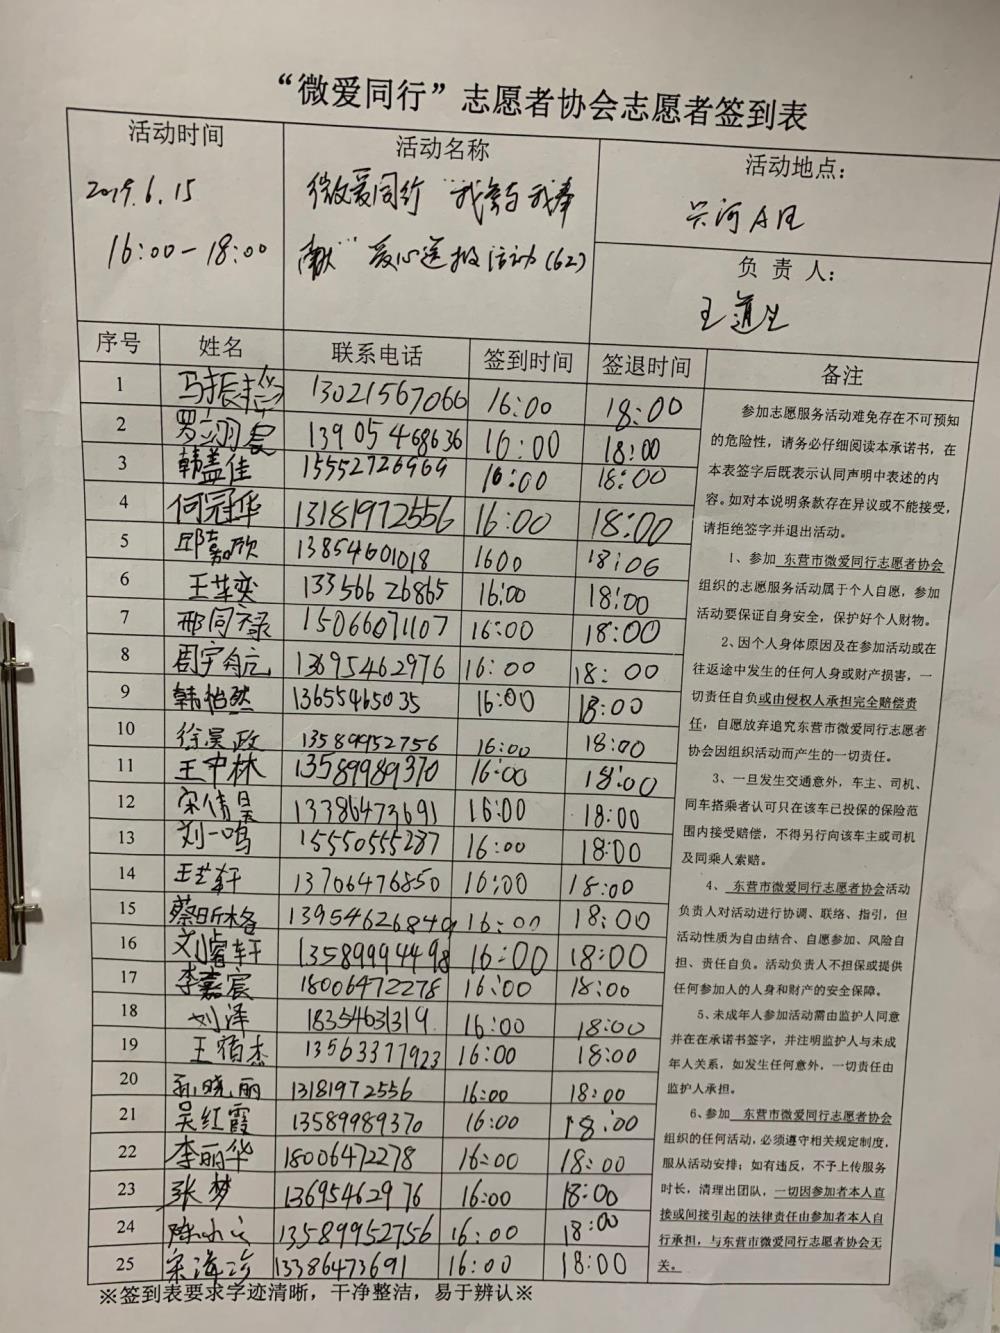 “微爱同行”志愿者协会志愿者签到表
活动时间 活动名称 活动地点：
2019.6.15 微爱同行 "我参与我奉 兴河A区
16:00-18:00 献" 爱心送报活动(62)
负责人：
王道生
序号 姓名 联系电话 签到时间 签退时间 备注
1 马振 13021567066 16:00 18:00
2 罗翊宸 13905468636 16:00 18:00
3 韩孟佳 15552726969 16:00 18:00
4 何冠华 13181972556 16:00 18:00
5 邱嘉欣 13854601018 1600 18:00
6 王芊奕 13356626865 16:00 18:00
7 邢同禄 15066071107 16:00 18:00
8 周宇 13695462976 16:00 18:00
9 韩怡然 13655465035 16:00 18:00
10 徐昊政 13589952756 16:00 18:00
11 王中林 13589989370 16:00 18:00
12 宋倩昱 13386473691 16:00 18:00
13 刘一鸣 15550555287 16:00 18:00
14 王艺轩 13706476850 16:00 18:00
15 蔡昕格 13954626849 16:00 18:00
16 刘睿轩 13589994498 16:00 18:00
17 李嘉宸 18006472278 16:00 18:00
18 刘泽 18354631319 16:00 18:00
19 王宿杰 13563377923 16:00 18:00
20 孙晓丽 13181972556 16:00 18:00
21 吴红霞 13589989370 16:00 18:00
22 李丽华 18006472278 16:00 18:00
23 张梦 13695462976 16:00 18:00
24 陈 13589952756 16:00 18:00
25 宋海 13386473691 16:00 18:00
参加志愿服务活动难免存在不可预知
的危险性，请务必仔细阅读本承诺书，在
本表签字后既表示认同声明中表述的内
容。如对本说明条款存在异议或不能接受，
请拒绝签字并退出活动。
1、参加 东营市微爱同行志愿者协会
组织的志愿服务活动属于个人自愿，参加
活动要保证自身安全，保护好个人财物。
2、因个人身体原因及在参加活动或在
往返途中发生的任何人身或财产损害，一
切责任自负或由侵权人承担完全赔偿责
任，自愿放弃追究东营市微爱同行志愿者
协会因组织活动而产生的一切责任。
3、一旦发生交通意外，车主、司机、
同车搭乘者认可只在该车已投保的保险范
围内接受赔偿，不得另行向该车主或司机
及同乘人索赔。
4、 东营市微爱同行志愿者协会活动
负责人对活动进行协调、联络、指引，但
活动性质为自由结合、自愿参加、风险自
担、责任自负。活动负责人不担保或提供
任何参加人的人身和财产的安全保障。
5、未成年人参加活动需由监护人同意
并在在承诺书签字，并注明监护人与未成
年人关系，如发生任何意外，一切责任由
监护人承担。
6、参加 东营市微爱同行志愿者协会
组织的任何活动，必须遵守相关规定制度，
服从活动安排；如有违反，不予上传服务
时长，清理出团队，一切因参加者本人直
接或间接引起的法律责任由参加者本人自
行承担，与东营市微爱同行志愿者协会无
关。
※签到表要求字迹清晰，干净整洁，易于辨认※